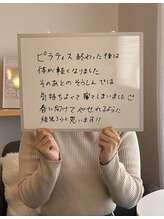 ピラティス 終わった後は
体が軽くなりました。
そのあとの そうしん では
気持ちよくて 寝てしまいました
春に向けて やせれるように
頑張ろうと思います!!